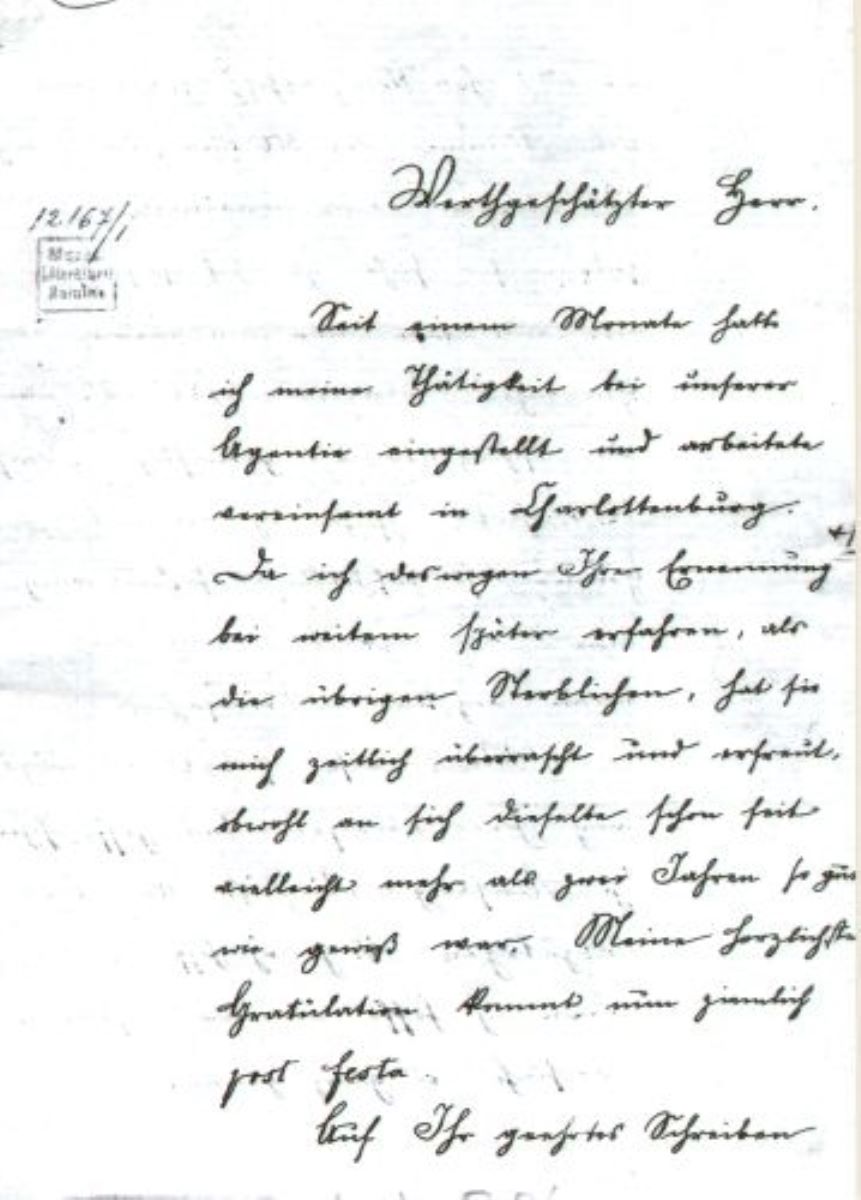 Werthgeschätzter Herr.
12167/1
Seit einem Monate hatte
ich meine Thätigkeit bei unserer
Agentie eingestellt und arbeitete
vereinsamt in Charlottenburg.
Da ich deswegen Ihre Ernennung +)
bei weitem später erfahren, als
die übrigen Sterblichen, hat sie
mich zeitlich überrascht und erfreut,
obwohl an sich dieselbe schon seit
vielleicht mehr als zwei Jahren so gut
wie gewiß war. Meine herzlichste
Gratulation kommt nun ziemlich
post festa.
Auf Ihr geehrtes Schreiben